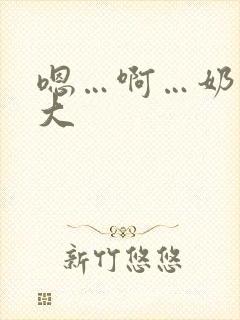 嗯…啊…奶
大
新竹悠悠